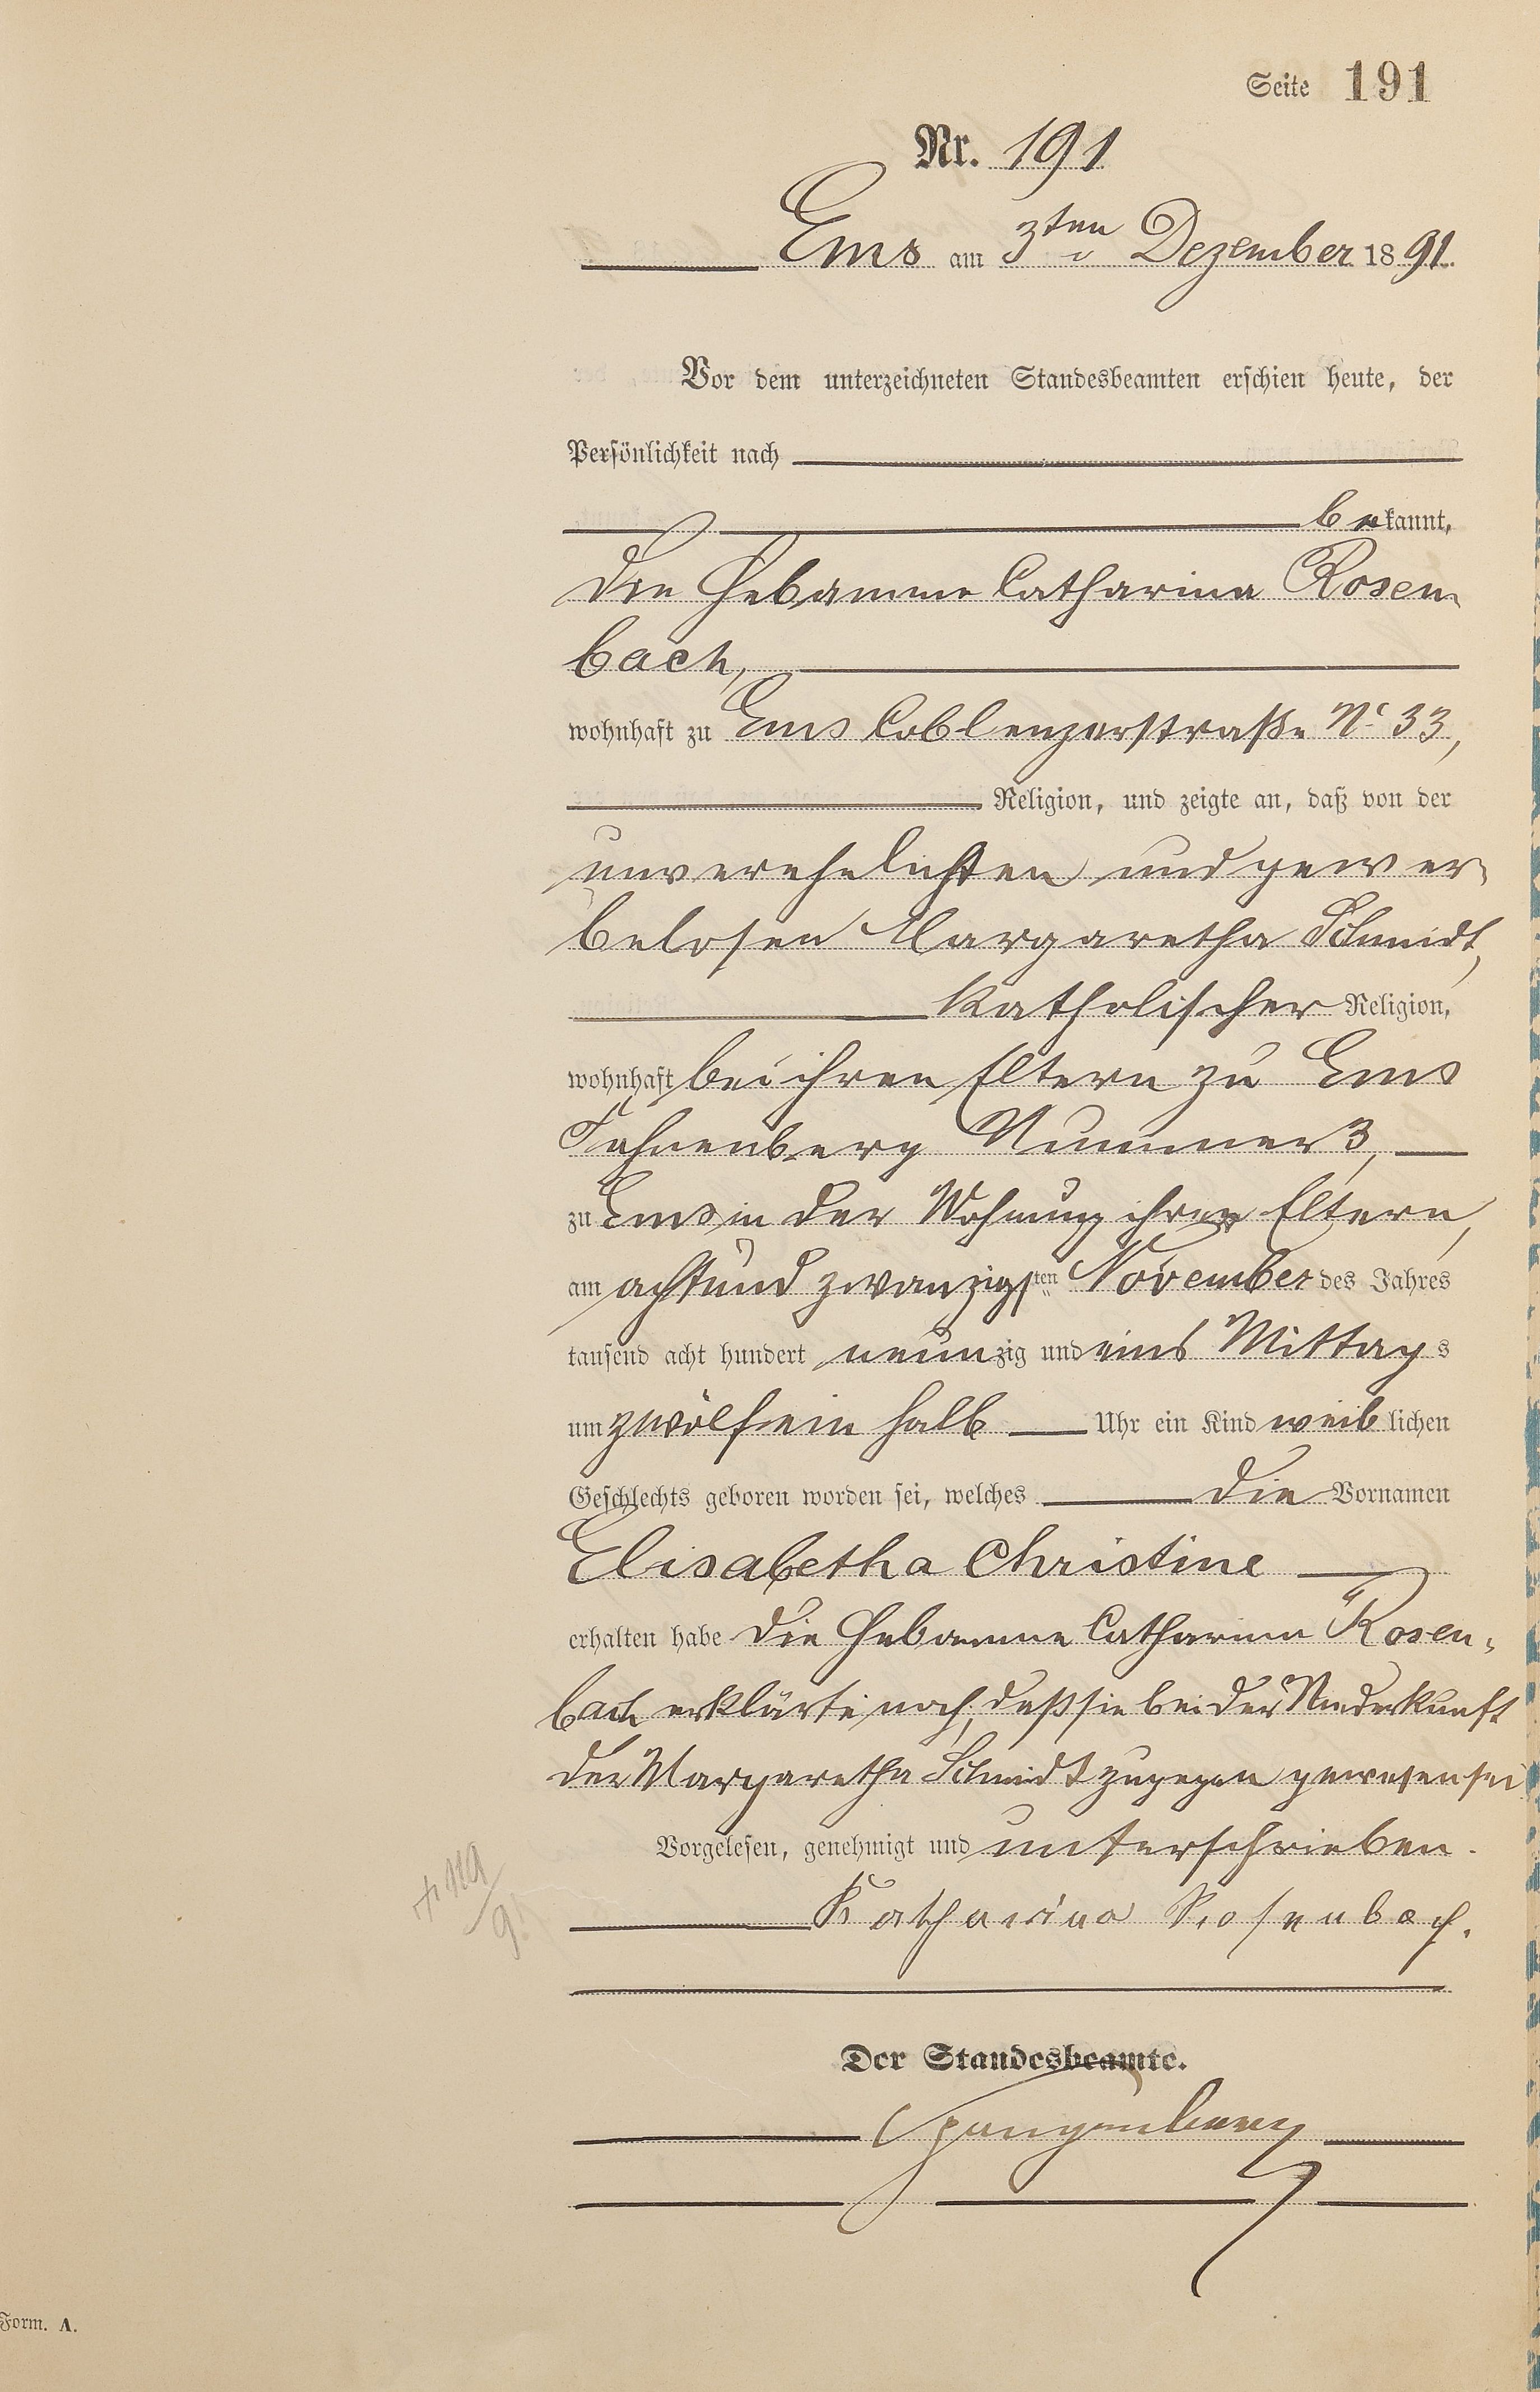 Seite 191
Nr. 191
Ems am 3ten Dezember 1891.
Vor dem unterzeichneten Standesbeamten erschien heute, der
Persönlichkeit nach
bekannt,
die Hebamme Catharina Rosen-
bach,
wohnhaft zu Ems Coblenzerstraße No 33,
Religion, und zeigte an, daß von der
unverehelichten und gewer-
belosen Margaretha Schmidt,
katholischer Religion,
wohnhaft bei ihren Eltern zu Ems
Fahnenberg Nummer 3,
zu Ems in der Wohnung ihrer Eltern,
am achtundzwanzigsten November des Jahres
tausend acht hundert neunzig und eins Mittags
um zwölfeinhalb Uhr ein Kind weiblichen
Geschlechts geboren worden sei, welches die Vornamen
Elisabetha Christine
erhalten habe Die Hebamme Catharina Rosen-
bach erklärte noch, daß sie bei der Niederkunft
der Margaretha Schmidt zugegen gewesen sei
Vorgelesen, genehmigt und unterschrieben.
Katharina Rosenbach.
Der Standesbeamte.
Spangenberg
Form. A.